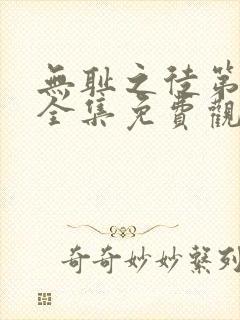 無耻之徒第
全集免費觀
奇奇妙妙繫列